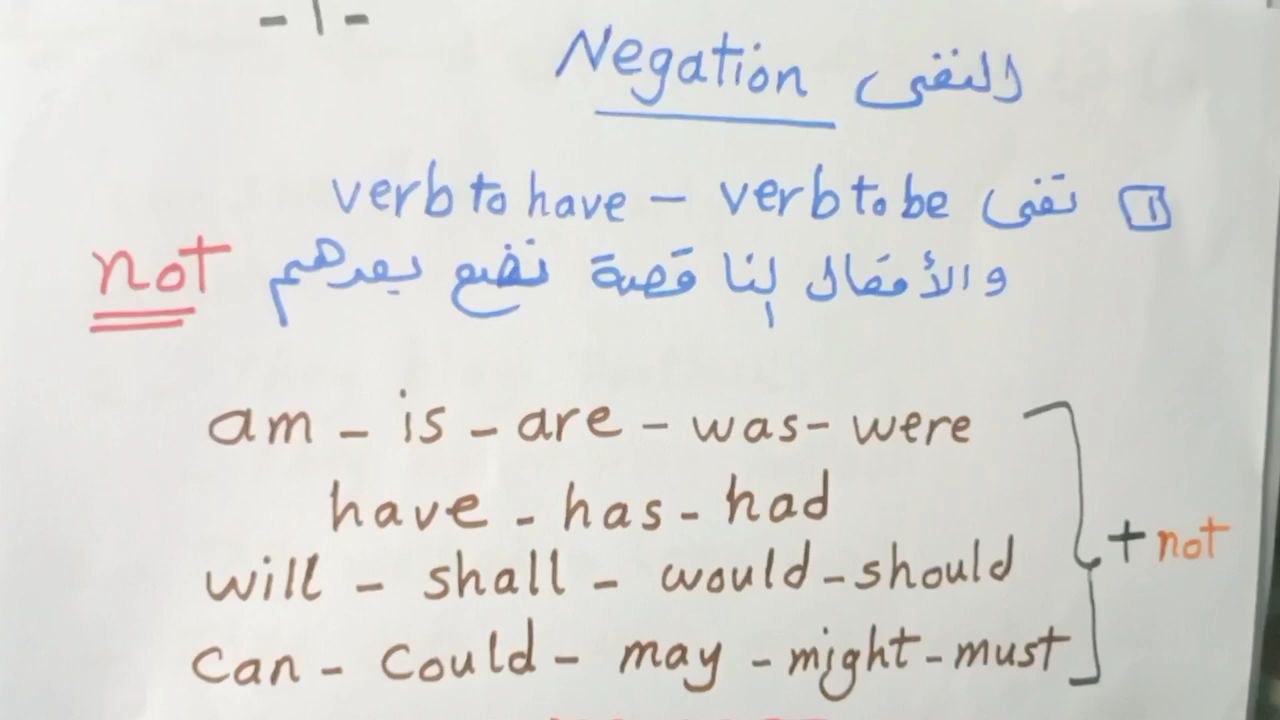 - ١ -
Negation النفى
① نفى verb to be - verb to have
والأفعال الناقصة نضع بعدهم not
am - is - are - was - were
have - has - had
will - shall - would - should
can - could - may - might - must
+ not